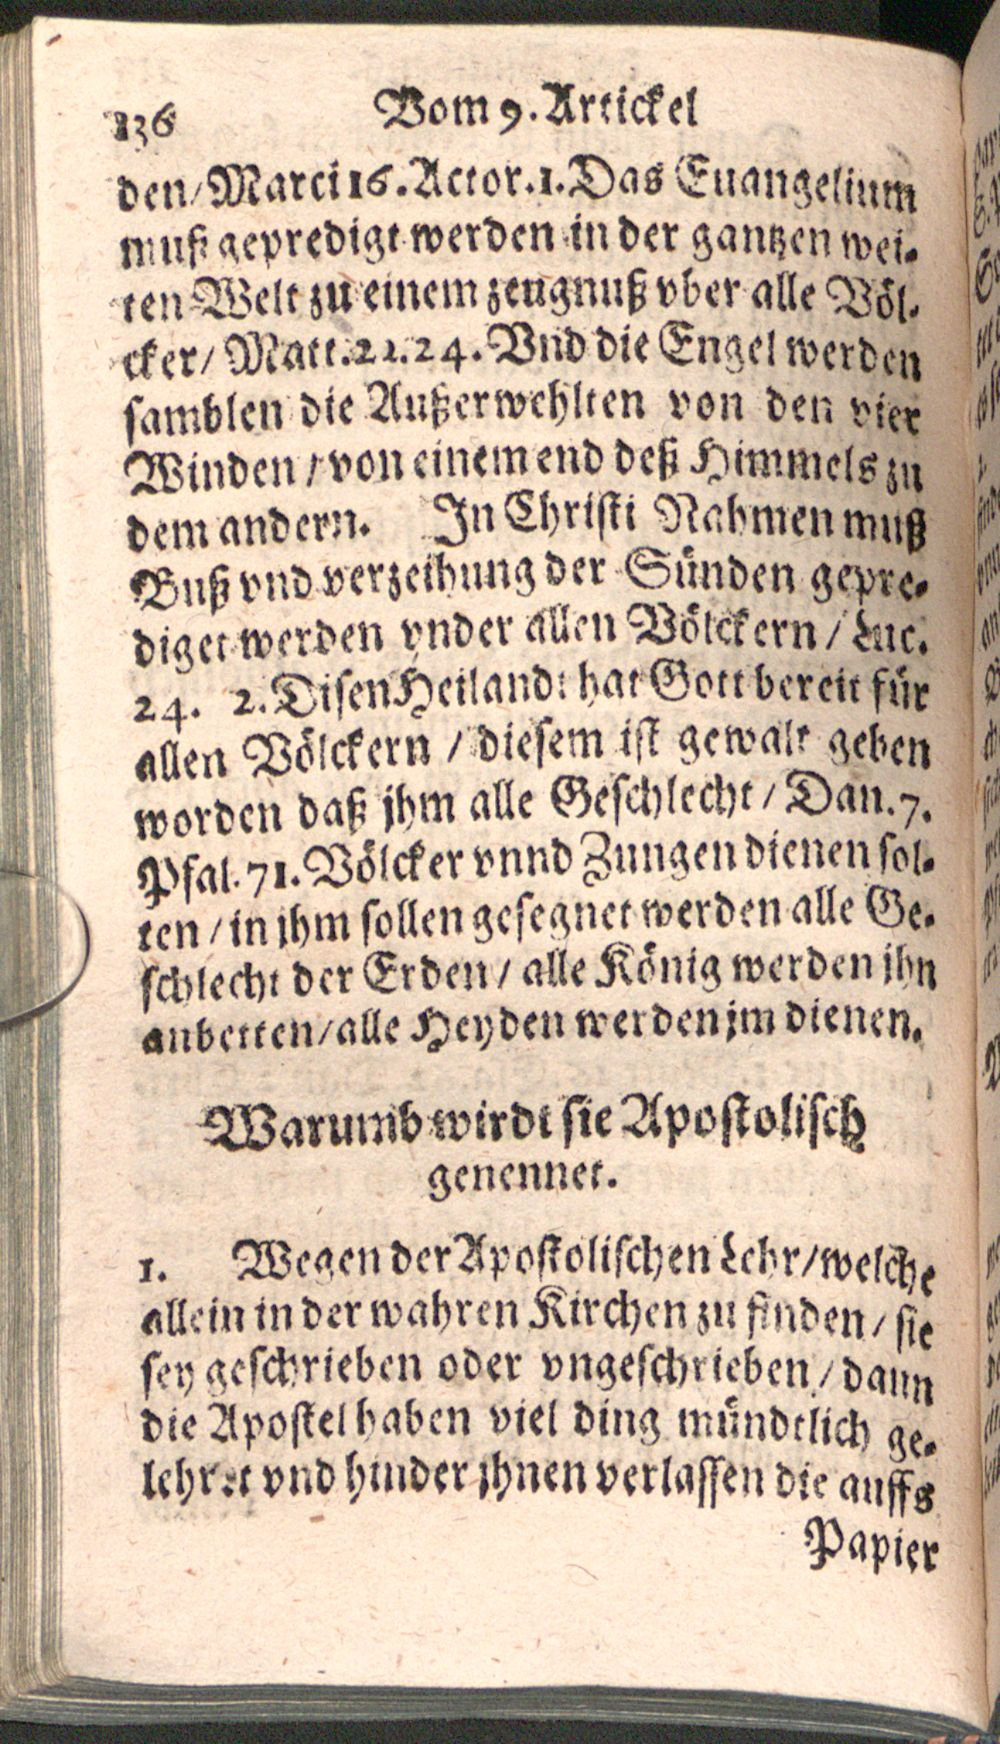 136 Vom 9. Artickel
den/ Marci 16. Actor. 1. Das Euangelium
muß gepredigt werden in der gantzen wei-
ten Welt zu einem zeugnuß vber alle Völ-
cker/ Matt. 21. 24. Vnd die Engel werden
samblen die Außerwehlten von den vier
Winden / von einem end deß Himmels zu
dem andern. In Christi Nahmen muß
Buß vnd verzeihung der Sünden gepre-
diget werden vnder allen Völckern / Luc.
24. 2. Disen Heilandt hat Gott bereit für
allen Völckern / diesem ist gewalt geben
worden daß jhm alle Geschlecht / Dan. 7.
Psal. 71. Völcker vnnd Zungen dienen sol-
ten / in jhm sollen gesegnet werden alle Ge-
schlecht der Erden / alle König werden jhn
anbetten/ alle Heyden werden jm dienen.
Warumb wirdt sie Apostolisch
genennet.
1. Wegen der Apostolischen Lehr/ welche
allein in der wahren Kirchen zu finden / sie
sey geschrieben oder vngeschrieben / dann
die Apostel haben viel ding mündtlich ge-
lehret vnd hinder jhnen verlassen die auffs
Papier